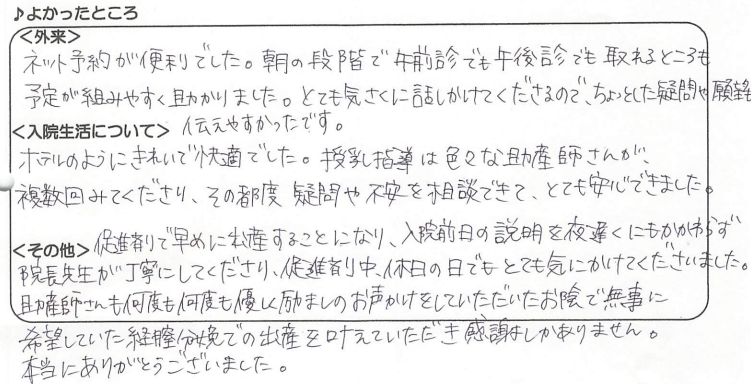 ♪よかったところ
<外来>
ネット予約が便利でした。朝の段階で午前診でも午後診でも取れるところも
予定が組みやすく助かりました。とても気さくに話しかけてくださるので、ちょっとした疑問や願望も
<入院生活について> 伝えやすかったです。
ホテルのようにきれいで快適でした。授乳指導は色々な助産師さんが、
複数回みてくださり、その都度疑問や不安を相談できて、とても安心できました。
<その他> 促進剤で早めに出産することになり、入院前日の説明を夜遅くにもかかわらず
院長先生が丁寧にしてくださり、促進剤中、休日の日でもとても気にかけてくださいました。
助産師さんも何度も何度も優しく励ましのお声かけをしていただいたお陰で無事に
希望していた経膣分娩での出産を叶えていただき感謝しかありません。
本当にありがとうございました。